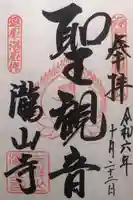 奉拝
令和六年
十月二十三日
聖観音
瀧山寺